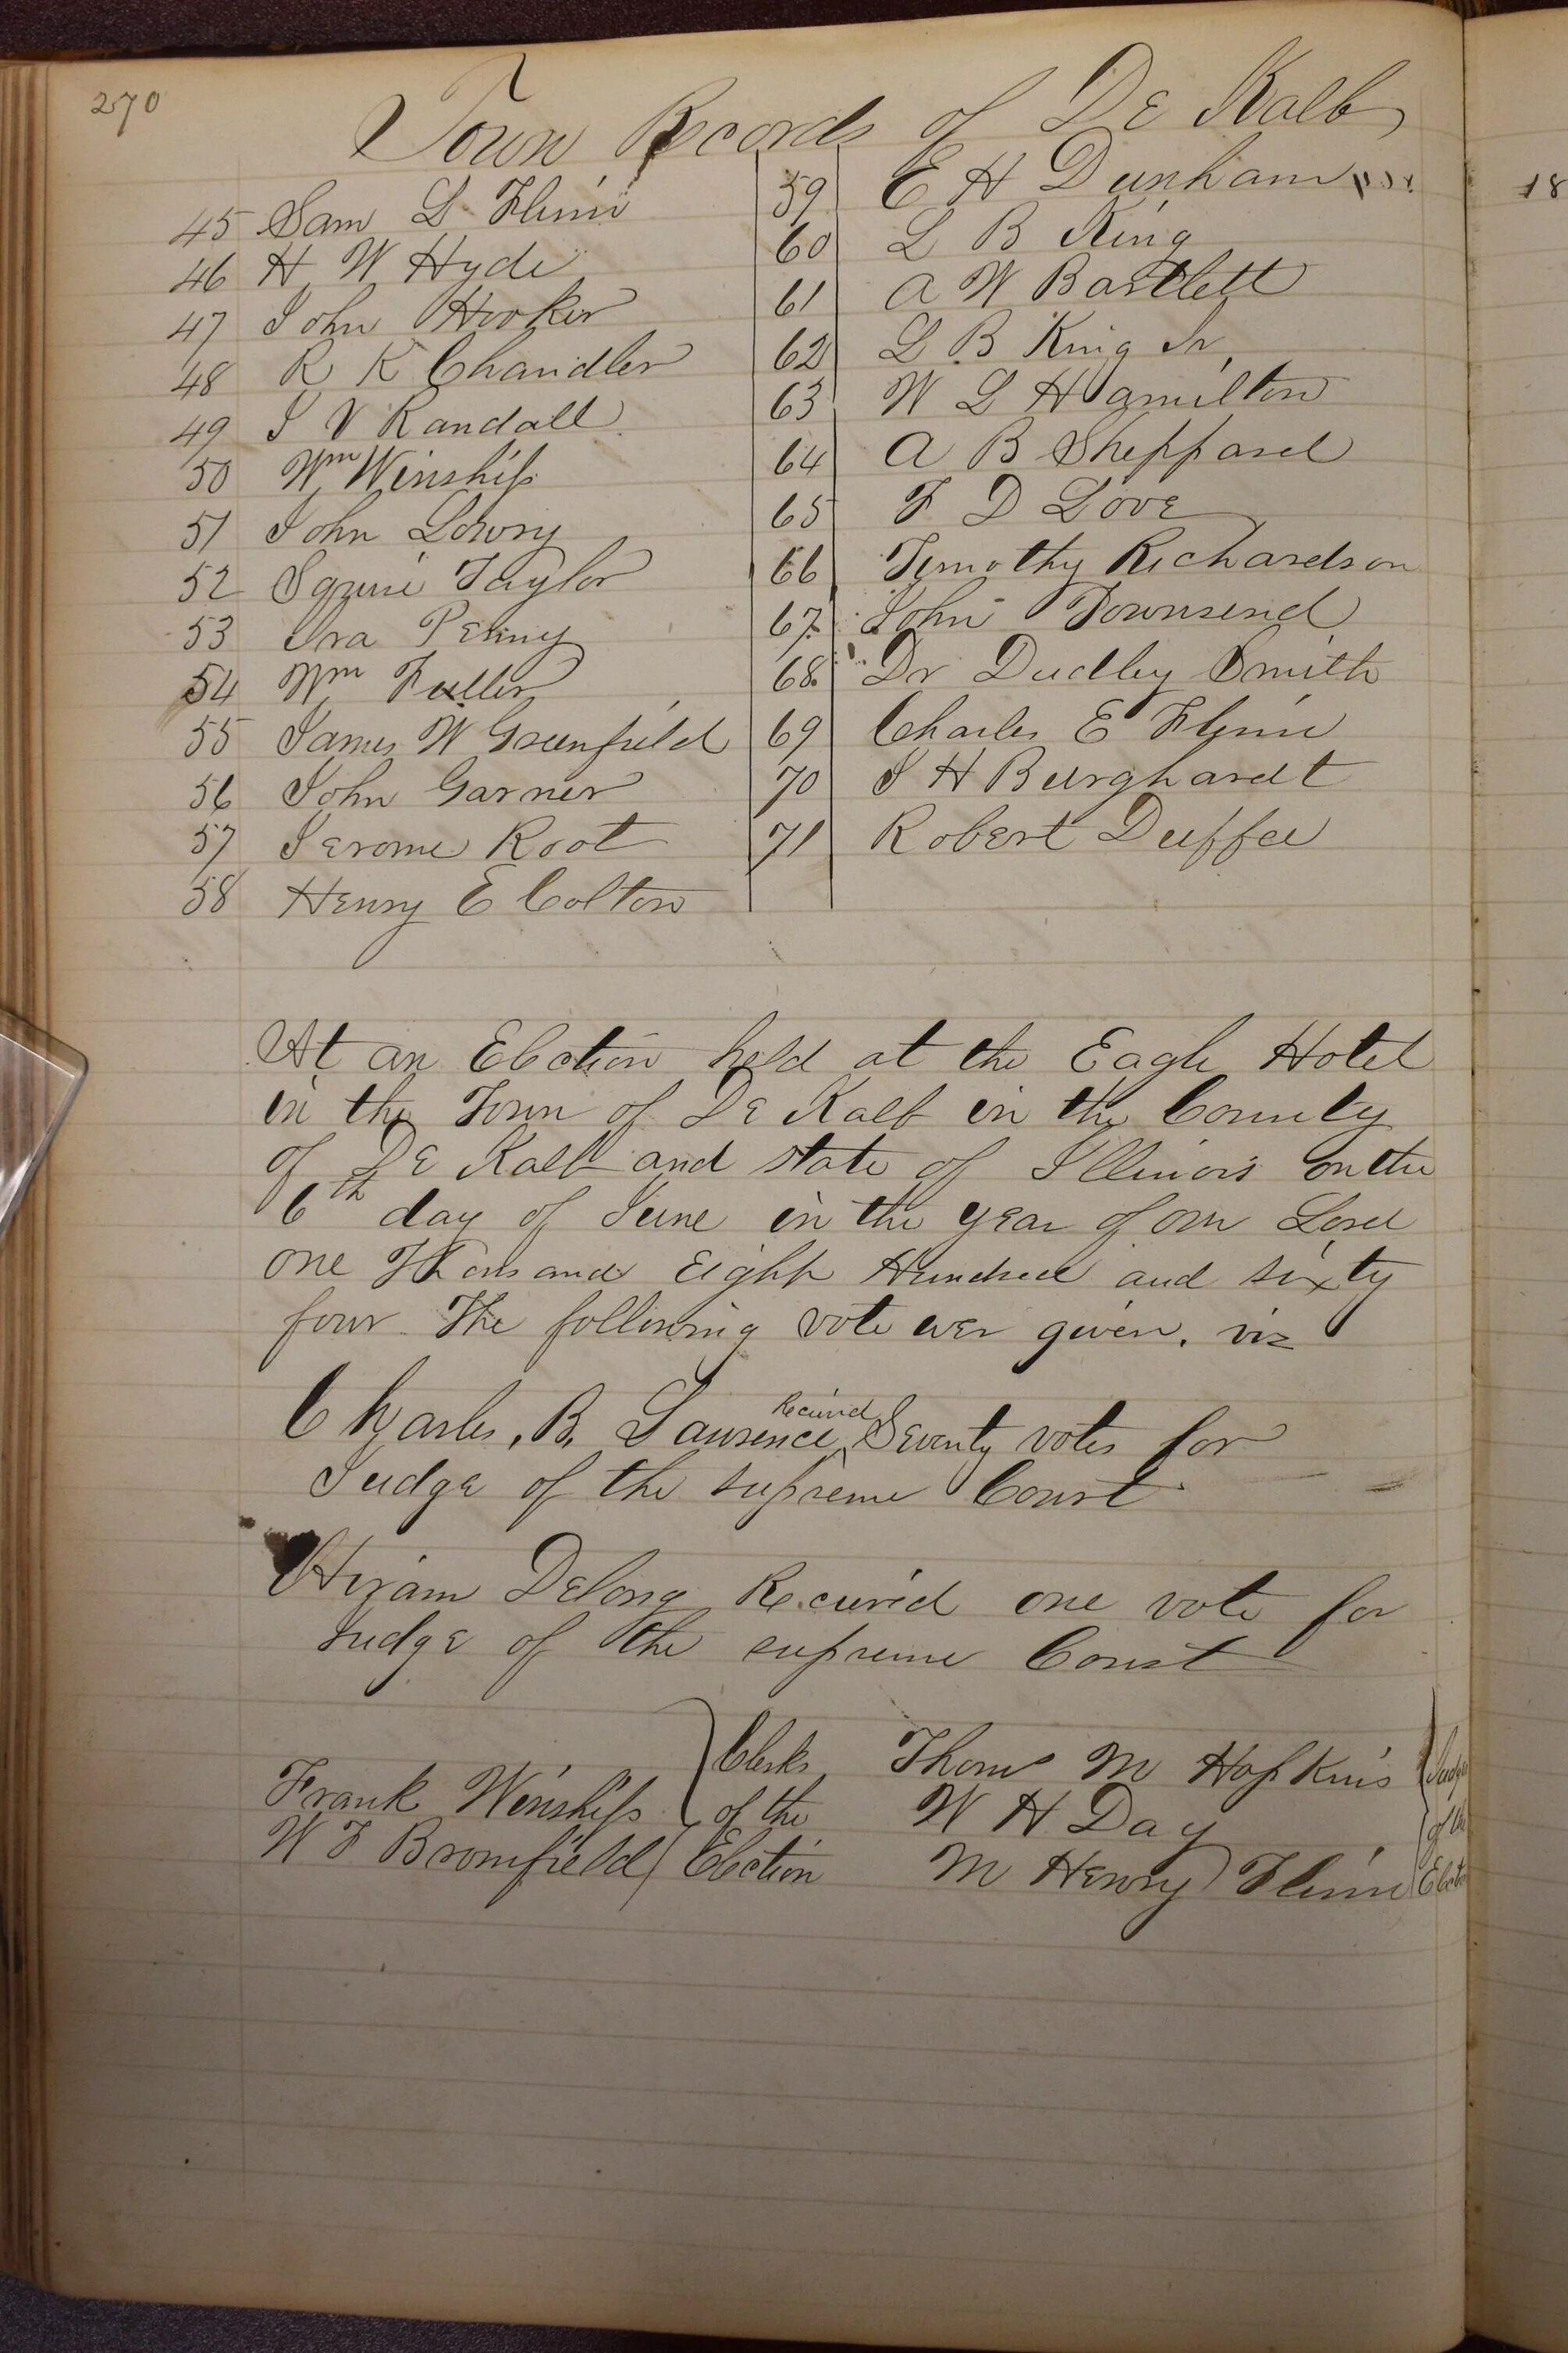 270
Town Records of De Kalb
45 Sam L Flinn
46 H W Hyde
47 John Hooker
48 R K Chandler
49 I V Randall
50 Wm Winship
51 John Lowry
52 Squire Taylor
53 Ira Penny
54 Wm Fuller
55 James W Greenfield
56 John Garner
57 Jerome Root
58 Henry E Colton
59 E H Dunham
60 L B King
61 A W Bartlett
62 L B King Jr
63 W L Hamilton
64 A B Sheppard
65 F D Love
66 Timothy Richardson
67 John Townsend
68 Dr Dudley Smith
69 Charles E Flinn
70 I H Burghardt
71 Robert Duffee
At an Election held at the Eagle Hotel
in the Town of De Kalb in the County
of De Kalb and state of Illinois on the
6th day of June in the year of our Lord
one Thousand Eight Hundred and sixty
four The following vote wer given. viz
Charles. B. Lawrence Received Seventy votes for
Judge of the supreme Court
Hiram Delong Received one vote for
Judge of the supreme Court
Frank Winship
W F Bromfield
Clerks
of the
Election
Thom M Hopkins
W H Day
M Henry Flinn
Judges
of the
18